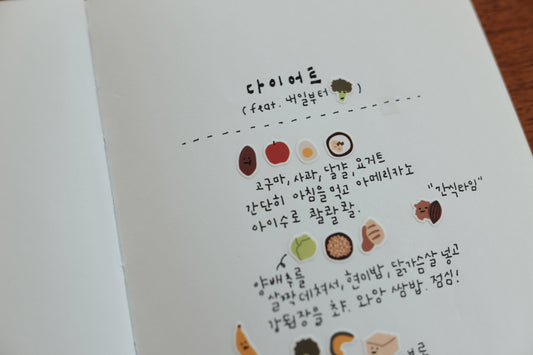 다이어트
(feat. 내일부터 )
고구마, 사과, 달걀, 요거트
간단히 아침을 먹고 아메리카노
아이수로 촬촬촬.
"간식타임"
양배추를
살짝 데쳐서, 현미밥, 닭가슴살 넣고
강된장을 촥. 와앙 쌈밥. 점심!